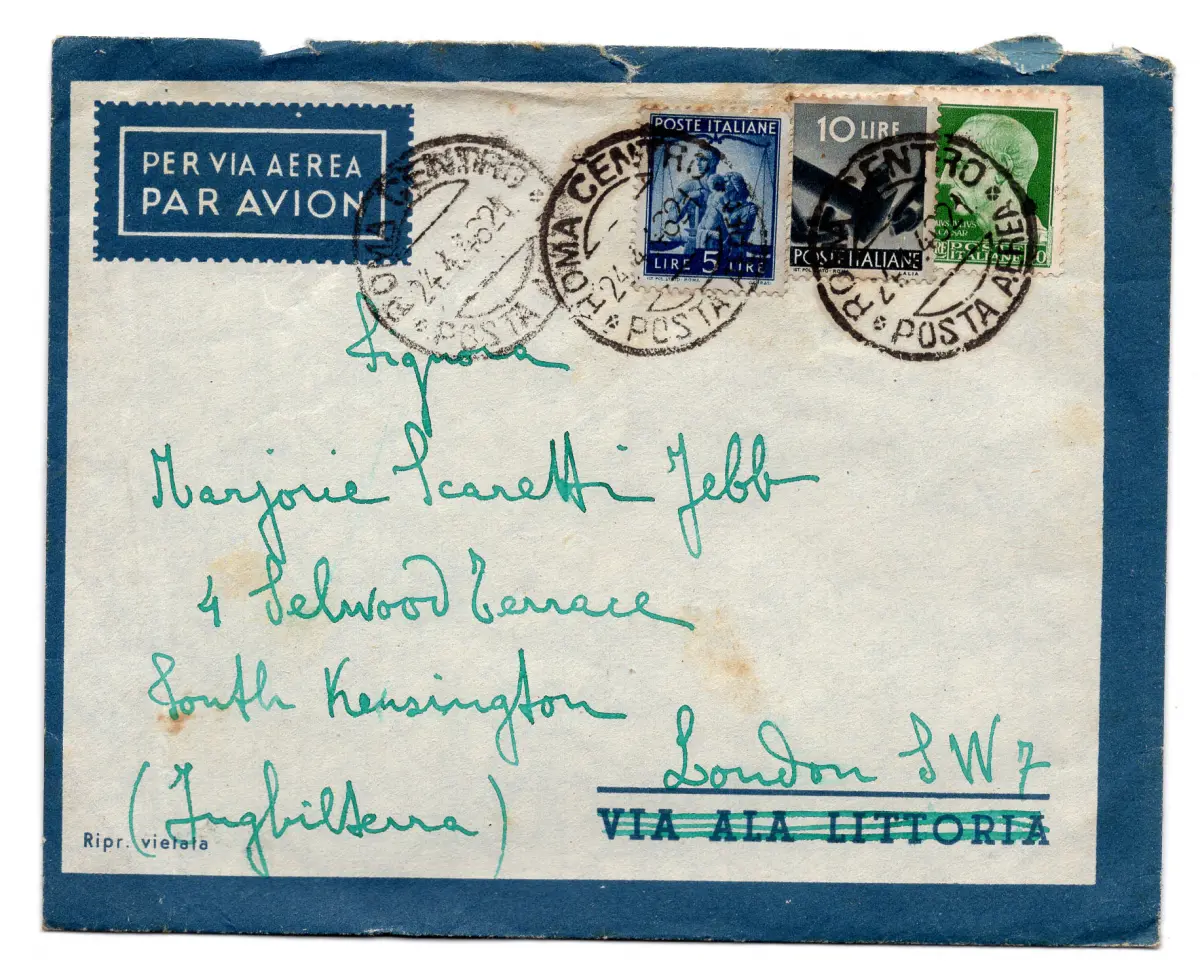 PER VIA AEREA
PAR AVION
ROMA CENTRO
24.4.48 21
POSTA
POSTE ITALIANE
LIRE 5 LIRE
ROMA CENTRO
24.4.48 21
POSTA
10 LIRE
POSTE ITALIANE
ITALIANE
ROMA CENTRO
POSTA AEREA
Signora
Marjorie Scaretti Jebb
4 Selwood Terrace
South Kensington
London SW7
(Inghilterra)
VIA ALA LITTORIA
Ripr. vietata